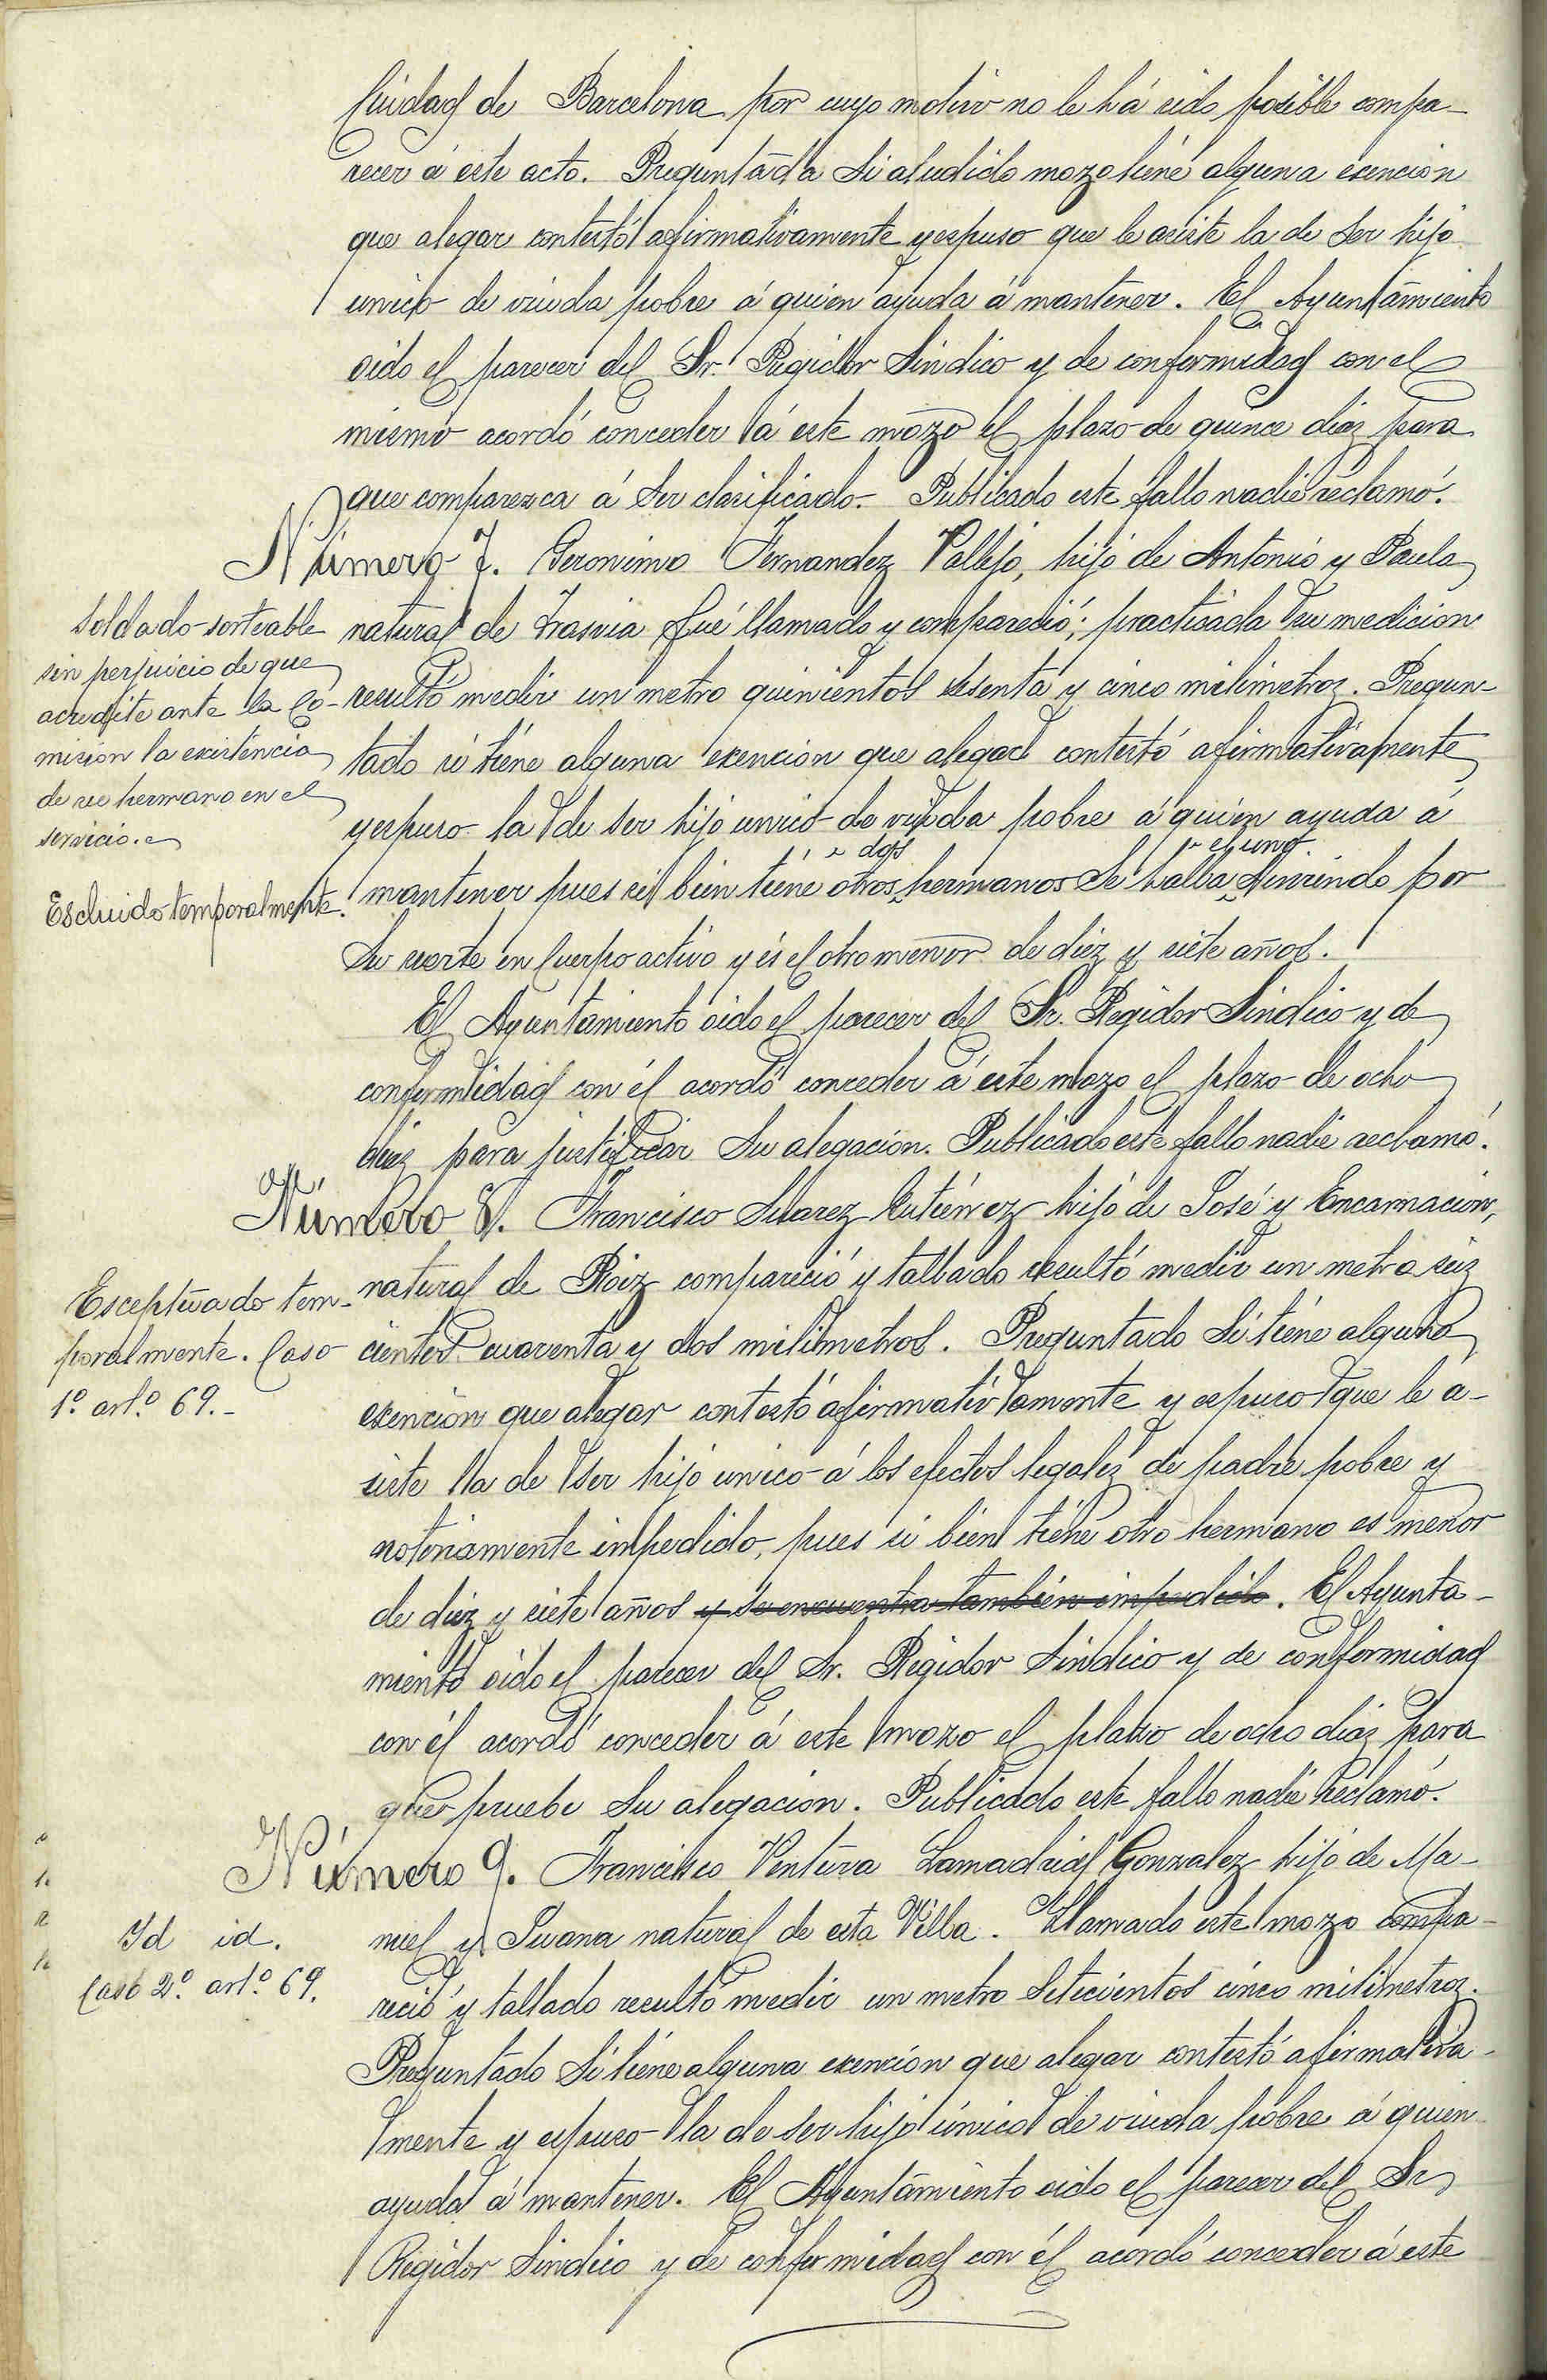 Ciudad de Barcelona por cuyo motivo no le há sido posible compa-
recer á este acto. Preguntada si aludido mozo tiéne alguna exención
que alegar contestó afirmativamente y espuso que le asiste la de ser hijo
unico de viuda pobre á quien ayuda á mantener. El Ayuntamiento
oido el parecer del Sr. Regidor Sindico y de conformidad con el
mismo acordó conceder á este mozo el plazo de quince dias para
que comparezca á ser clasificado. Publicado este fallo nadie reclamó.
Número 7. Geronimo Fernandez Vallejo, hijo de Antonio y Paula
Soldado sorteable
sin perjuicio de que
acredite ante la Co-
misión la existencia
de su hermano en el
servicio.
Escluido temporalmente.
natural de Trasvia fué llamado y compareció; practicada su medicion
resultó medir un metro quinientos sesenta y cinco milimetros. Pregun-
tado si tiéne alguna exencion que alegar contestó afirmativamente
y espuso la de ser hijo unico de viuda pobre á quien ayuda á
mantener pues si bien tiene otros dos hermanos se halla el uno sirviendo por
su suerte en Cuerpo activo y és el otro menor de diéz y siéte años.
El Ayuntamiento oido el parecer del Sr. Regidor Sindico y de
conformidad con él acordó conceder á este mozo el plazo de ocho
dias para justificar su alegación. Publicado este fallo nadie reclamó.
Número 8. Francisco Suarez Gutiérrez hijo de José y Encarnación,
Esceptuado tem-
poralmente. Caso
1º. artº. 69.-
natural de Roiz compareció y tallado resultó medir un metro seis
cientos cuarenta y dos milimetros. Preguntado si tiéne alguna
exención que alegar contestó afirmativamente y espuso que le a-
siste la de ser hijo unico á los efectos legales de padre pobre y
notoriamente impedido, pues si bien tiéne otro hermano es menor
de diez y siete años y se encuentra también impedido. El Ayunta-
miento oido el parecer del Sr. Regidor Sindico y de conformidad
con él acordó conceder á este mozo el plazo de ocho dias para
que pruebe su alegacion. Publicado este fallo nadie reclamó.
Número 9. Francisco Ventura Lamadrid Gonzalez hijo de Ma-
Id id.
Caso 2º. artº. 69.
nuel y Juana natural de esta Villa. Llamado este mozo compa-
reció y tallado resultó medir un metro setecientos cinco milimetros.
Preguntado si tiéne alguna exención que alegar contestó afirmativa-
mente y espuso la de ser hijo único de viuda pobre á quien
ayuda á mantener. El Ayuntamiento oido el parecer del Sr
Regidor Sindico y de conformidad con él acordó conceder á este